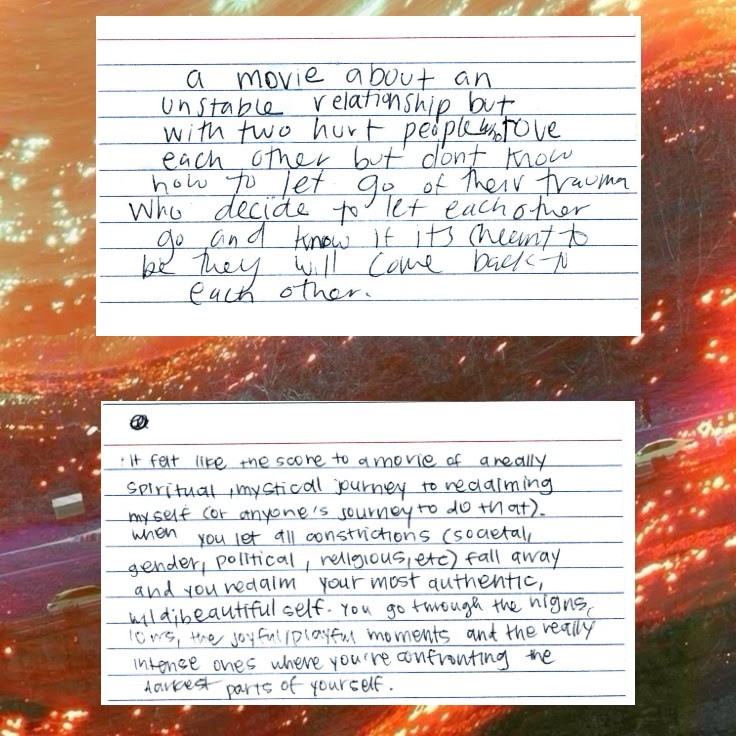 a movie about an
unstable relationship but
with two hurt people who love
each other but dont know
how to let go of their trauma
who decide to let eachother
go and know if its meant to
be they will come back to
each other.
·It felt like the score to a movie of a really
spiritual, mystical journey to reclaiming
myself (or anyone's journey to do that).
when you let all constrictions (societal,
gender, political, religious, etc) fall away
and you reclaim your most authentic,
wild, beautiful self. You go through the highs,
lows, the joyful/playful moments and the really
intense ones where you're confronting the
darkest parts of yourself.